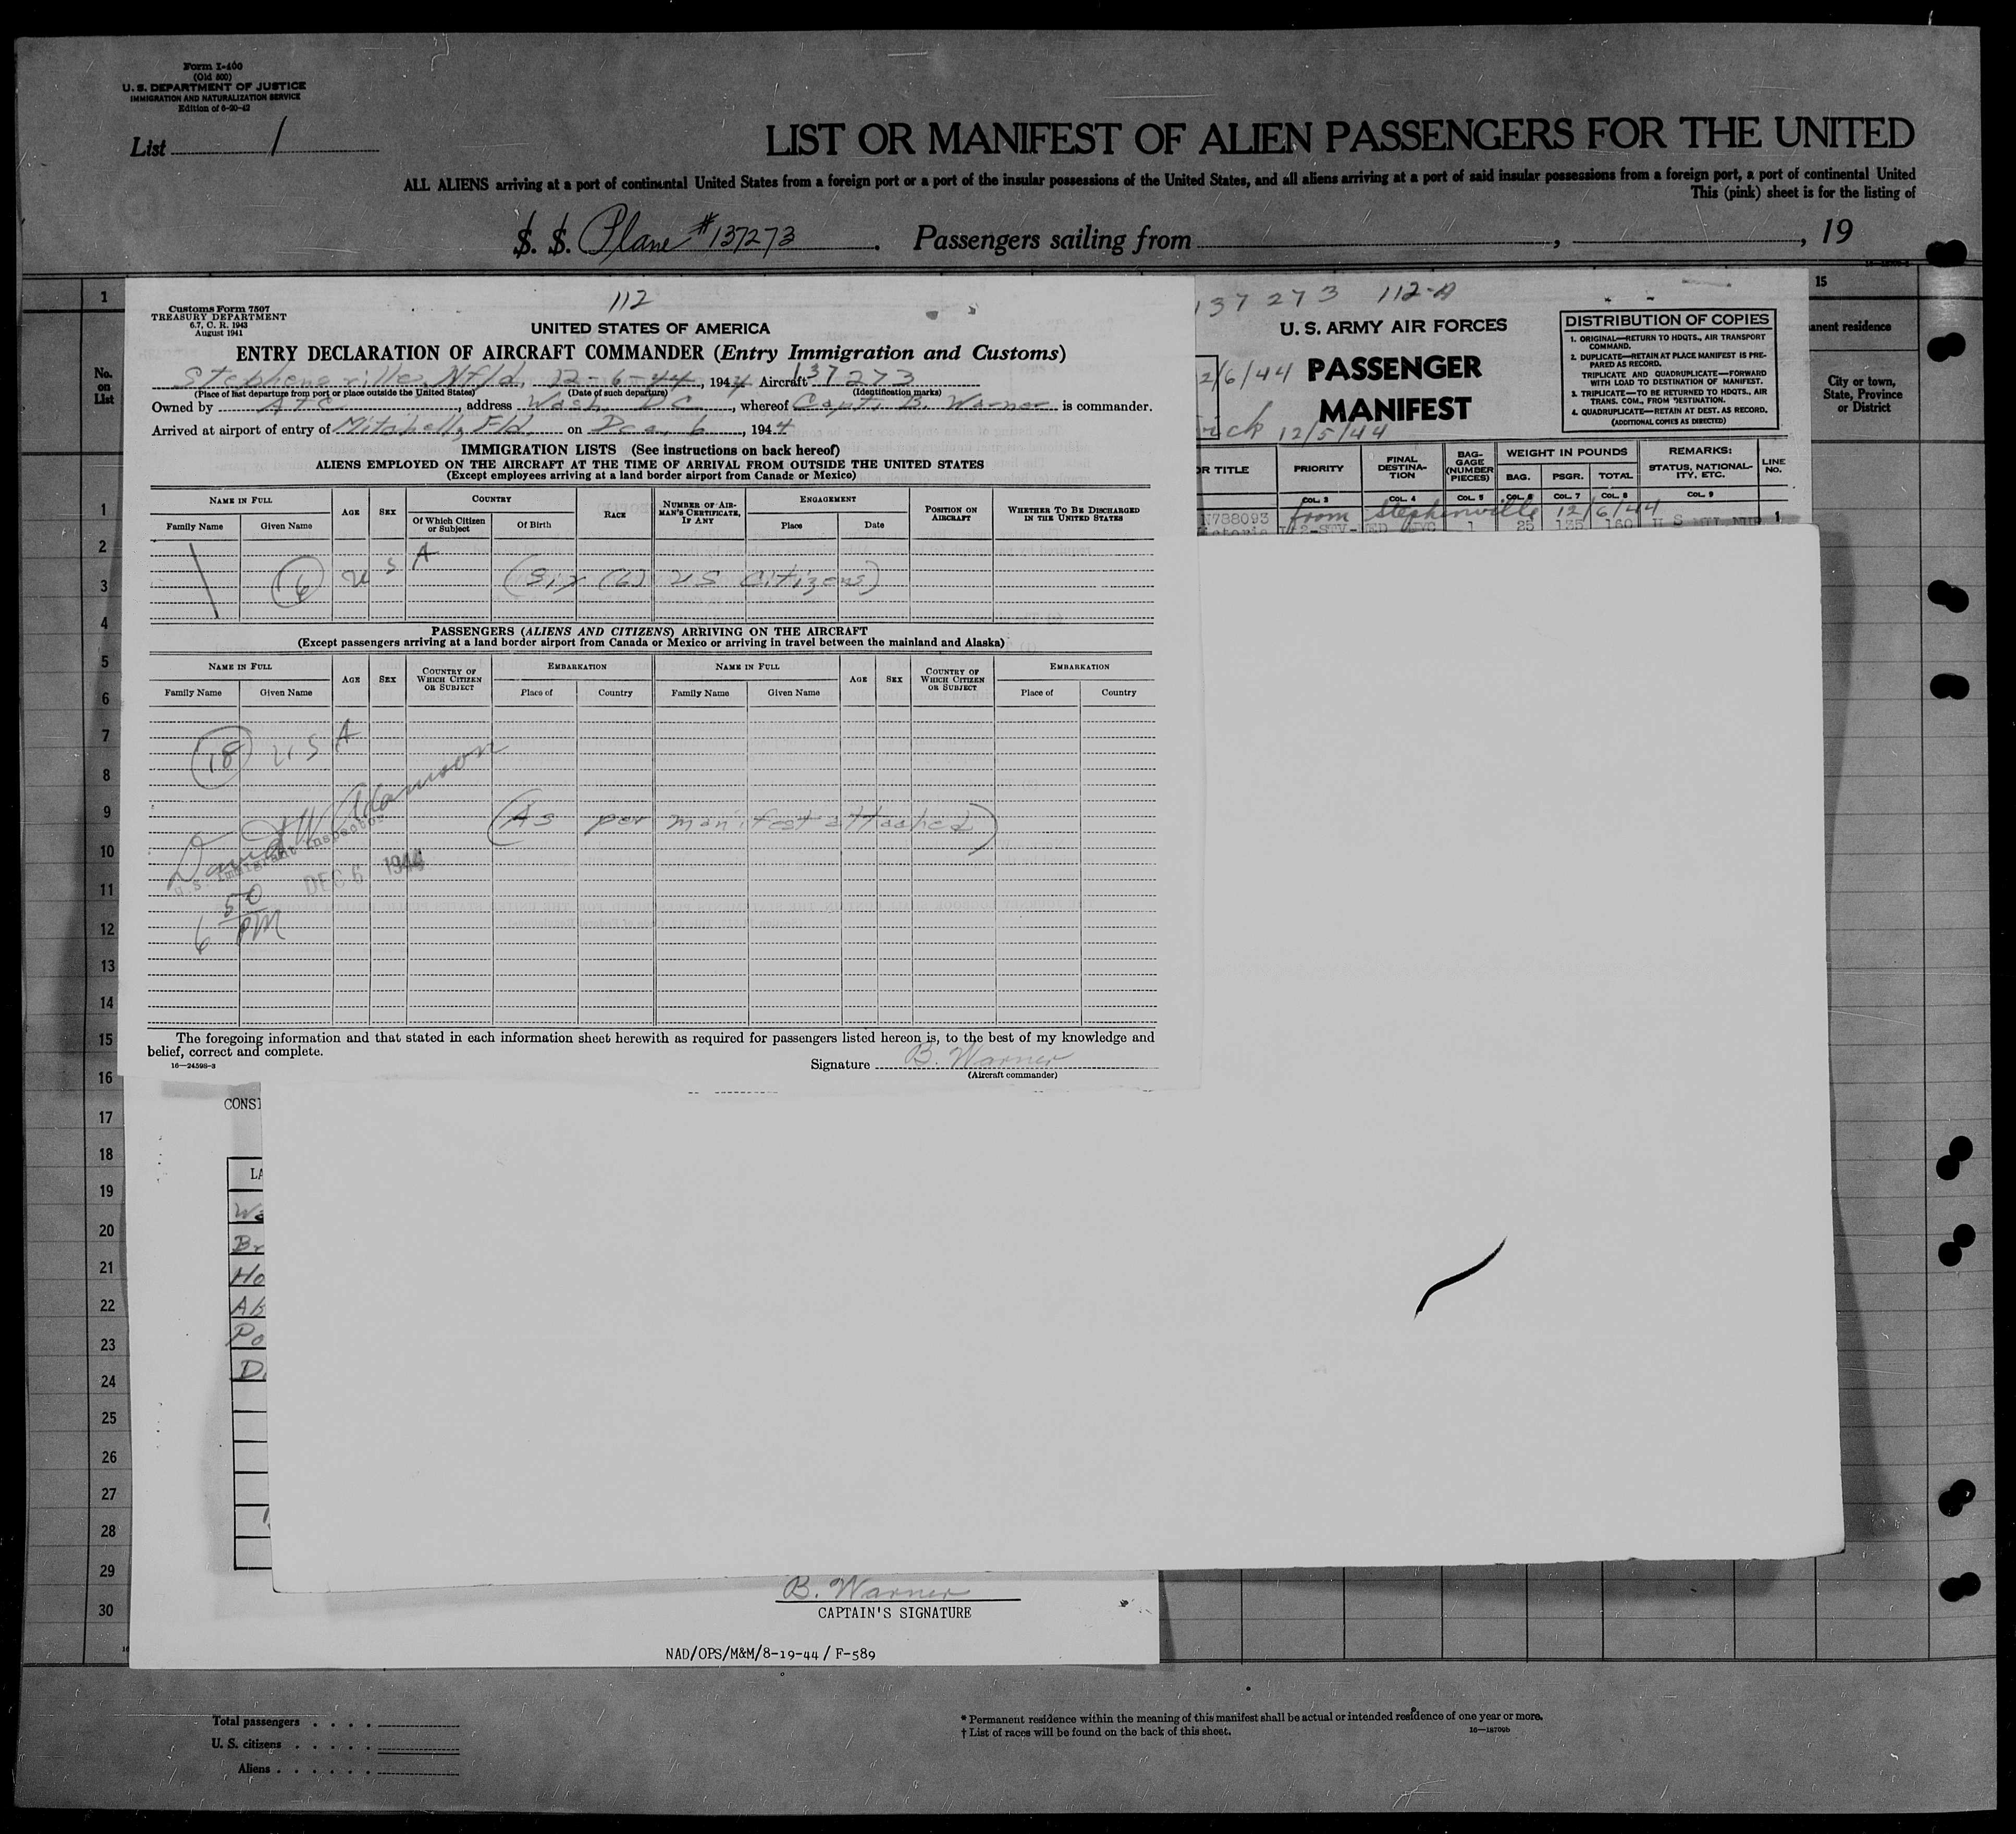 Form I-400
(Old 500)
U. S. DEPARTMENT OF JUSTICE
IMMIGRATION AND NATURALIZATION SERVICE
Edition of 6-20-42
List 1
LIST OR MANIFEST OF ALIEN PASSENGERS FOR THE UNITED
ALL ALIENS arriving at a port of continental United States from a foreign port or a port of the insular possessions of the United States, and all aliens arriving at a port of said insular possessions from a foreign port, a port of continental United
This (pink) sheet is for the listing of
S. S. Plane #137273 . Passengers sailing from , , 19
1
15
No. on List
anent residence
City or town, State, Province or District
112
Customs Form 7507
TREASURY DEPARTMENT
6.7, C. R. 1943
August 1941
UNITED STATES OF AMERICA
ENTRY DECLARATION OF AIRCRAFT COMMANDER (Entry Immigration and Customs)
Stephenville, Nfld, 12-6-44, 1944 Aircraft 137273
(Place of last departure from port or place outside the United States) (Date of such departure) (Identification marks)
Owned by ATC, address Wash DC, whereof Capt. B. Warner is commander.
Arrived at airport of entry of Mitchell Fld. on Dec. 6, 1944
IMMIGRATION LISTS (See instructions on back hereof)
ALIENS EMPLOYED ON THE AIRCRAFT AT THE TIME OF ARRIVAL FROM OUTSIDE THE UNITED STATES
(Except employees arriving at a land border airport from Canada or Mexico)
NAME IN FULL AGE SEX COUNTRY RACE NUMBER OF AIRMAN'S CERTIFICATE, IF ANY ENGAGEMENT POSITION ON AIRCRAFT WHETHER TO BE DISCHARGED IN THE UNITED STATES
Family Name Given Name Of Which Citizen or Subject Of Birth Place Date
6 U S A
(Six (6) US Citizens)
PASSENGERS (ALIENS AND CITIZENS) ARRIVING ON THE AIRCRAFT
(Except passengers arriving at a land border airport from Canada or Mexico or arriving in travel between the mainland and Alaska)
NAME IN FULL AGE SEX COUNTRY OF WHICH CITIZEN OR SUBJECT EMBARKATION NAME IN FULL AGE SEX COUNTRY OF WHICH CITIZEN OR SUBJECT EMBARKATION
Family Name Given Name Place of Country Family Name Given Name Place of Country
18 U S A
(As per manifest attached)
David W Adamson
U.S. Immigrant Inspector
DEC 6 1944
6 50 PM
The foregoing information and that stated in each information sheet herewith as required for passengers listed hereon is, to the best of my knowledge and
belief, correct and complete.
Signature B. Warner
16—24598-3
(Aircraft commander)
137273 112-A
U. S. ARMY AIR FORCES
PASSENGER
MANIFEST
12/6/44
ick 12/5/44
DISTRIBUTION OF COPIES
1. ORIGINAL—RETURN TO HDQTS., AIR TRANSPORT COMMAND.
2. DUPLICATE—RETAIN AT PLACE MANIFEST IS PREPARED AS RECORD.
TRIPLICATE AND QUADRUPLICATE—FORWARD WITH LOAD TO DESTINATION OF MANIFEST.
3. TRIPLICATE—TO BE RETURNED TO HDQTS., AIR TRANS. COM., FROM DESTINATION.
4. QUADRUPLICATE—RETAIN AT DEST. AS RECORD.
(ADDITIONAL COPIES AS DIRECTED)
OR TITLE PRIORITY FINAL DESTINATION BAGGAGE (NUMBER PIECES) WEIGHT IN POUNDS REMARKS: STATUS, NATIONALITY, ETC. LINE NO.
BAG. PSGR. TOTAL
COL. 3 COL. 4 COL. 5 COL. 6 COL. 7 COL. 8 COL. 9
N788093 from Stephenville 12/6/44
1 25 135 160 1
1
2
3
4
5
6
7
8
9
10
11
12
13
14
15
16
17
18
19
20
21
22
23
24
25
26
27
28
29
30
CONSI
LA
Wa
Br
Ho
Ab
Po
D
B. Warner
CAPTAIN'S SIGNATURE
NAD/OPS/M&M/8-19-44 / F-589
Total passengers
U. S. citizens
Aliens
* Permanent residence within the meaning of this manifest shall be actual or intended residence of one year or more.
† List of races will be found on the back of this sheet.
16—18709b